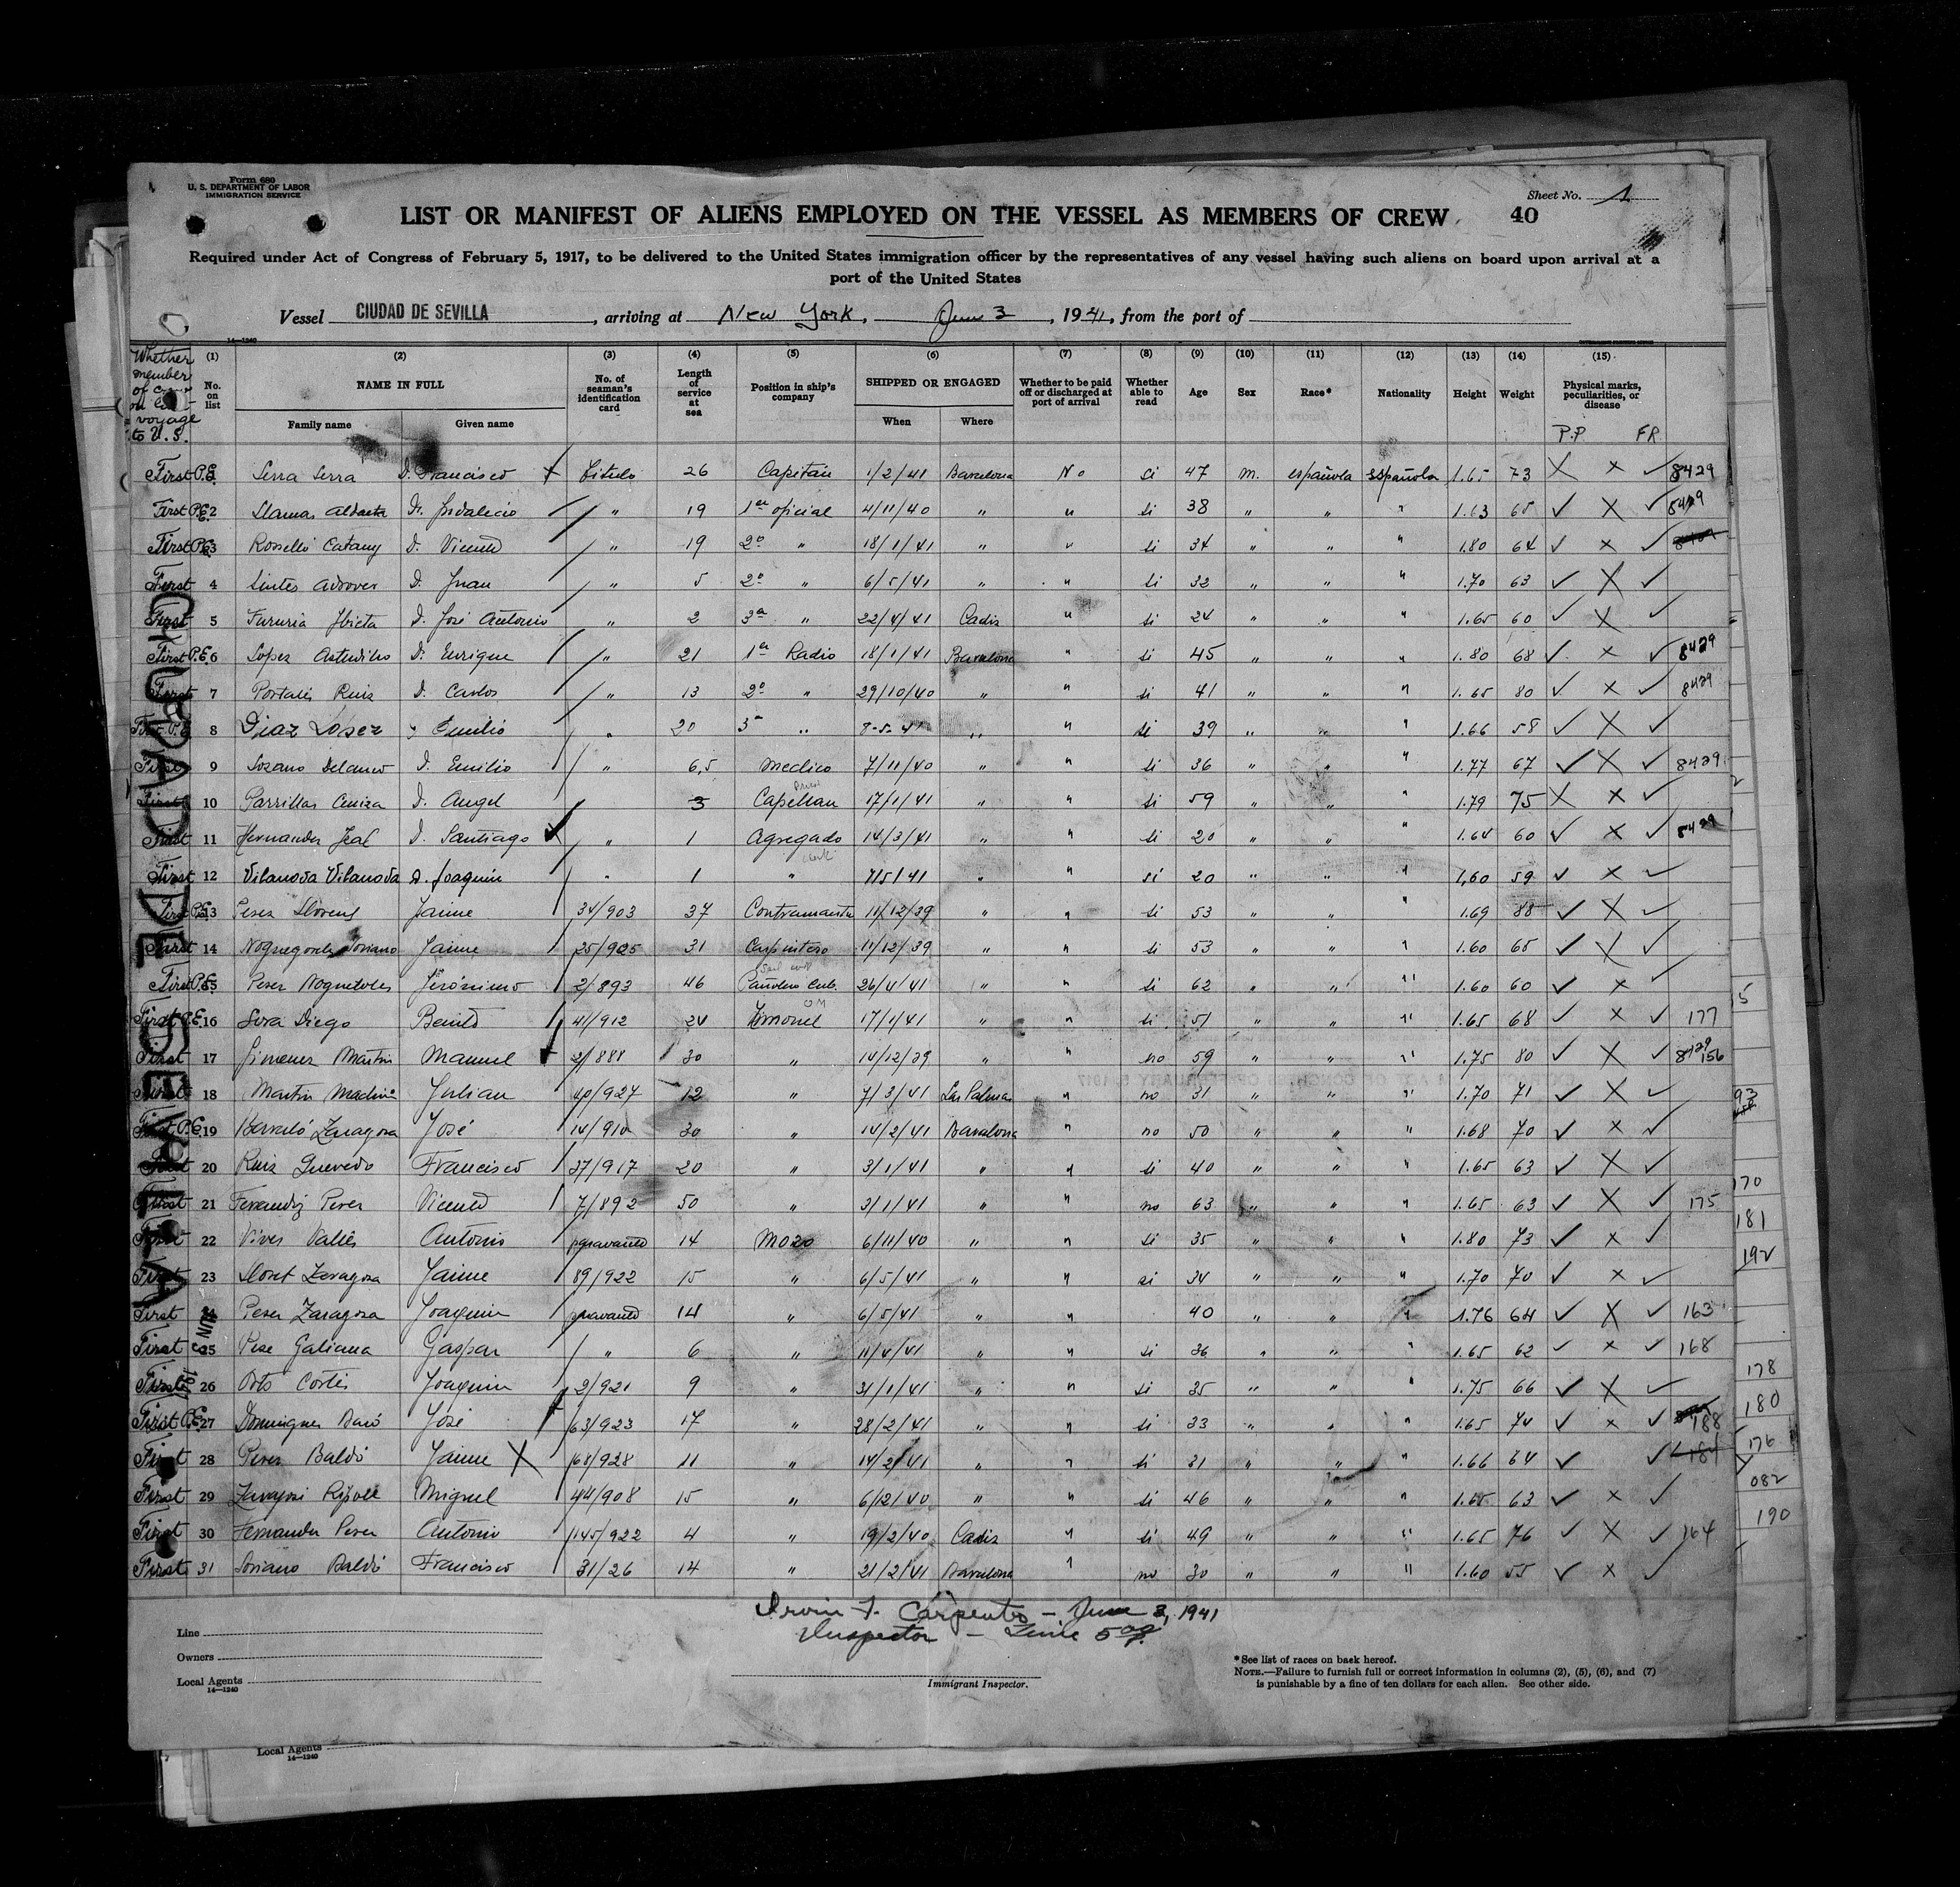 Form 680
U. S. DEPARTMENT OF LABOR
IMMIGRATION SERVICE
Sheet No. 1
LIST OR MANIFEST OF ALIENS EMPLOYED ON THE VESSEL AS MEMBERS OF CREW 40
Required under Act of Congress of February 5, 1917, to be delivered to the United States immigration officer by the representatives of any vessel having such aliens on board upon arrival at a
port of the United States
Vessel CIUDAD DE SEVILLA, arriving at New York, June 3, 1941, from the port of
14—1240
Whether member of crew on last voyage to U.S.
(1) (2) (3) (4) (5) (6) (7) (8) (9) (10) (11) (12) (13) (14) (15)
No. on list NAME IN FULL No. of seaman's identification card Length of service at sea Position in ship's company SHIPPED OR ENGAGED Whether to be paid off or discharged at port of arrival Whether able to read Age Sex Race* Nationality Height Weight Physical marks, peculiarities, or disease
Family name Given name When Where P.P FR
First P.E. 1 Serra Serra D. Francisco X Titulo 26 Capitán 1/2/41 Barcelona No si 47 m. española española 1.65 73 X X ✓ 8429
First P.E. 2 Llamas D. Indalecio / " 19 1er oficial 4/11/40 " " si 38 " " " 1.63 65 ✓ X ✓ 8429
First P.E. 3 Rosselló Catany D. Vicente / " 19 2º " 18/1/41 " " si 34 " " " 1.80 64 ✓ X ✓
First 4 Sintes Adrover D. Juan / " 5 2º " 6/5/41 " " si 32 " " " 1.70 63 ✓ X ✓
First 5 D. José Antonio / " 2 3º " 22/4/41 Cadiz " si 24 " " " 1.65 60 ✓ X ✓
First P.E. 6 Lopez Astudillo D. Enrique / " 21 1er Radio 18/1/41 Barcelona " si 45 " " " 1.80 68 ✓ X ✓ 8429
First 7 Portales Ruiz D. Carlos / " 13 2º " 29/10/40 " " si 41 " " " 1.65 80 ✓ X ✓ 8429
First P.E. 8 Diaz Lopez " Emilio " 20 3º " 8-5-41 " " si 39 " " " 1.66 58 ✓ X ✓
First 9 Lozano D. Emilio / " 6,5 medico 7/11/40 " " si 36 " " " 1.77 67 ✓ X ✓ 8429
First 10 Parrillas D. Angel / 3 Capellan Priest 17/1/41 " " si 59 " " " 1.79 75 X X ✓
First 11 Hernandez D. Santiago ✓ " 1 Agregado 14/3/41 " " si 20 " " " 1.64 60 ✓ X ✓ 8429
First 12 Vilanova Vilanova D. Joaquin / " 1 " 7/5/41 " " si 20 " " " 1,60 59 ✓ X ✓
First P.E. 13 Perez Llorens Jaime / 34/903 37 Contramaestre 11/12/39 " " si 53 " " " 1.69 88 ✓ X ✓
First 14 Soriano Jaime / 25/925 31 Carpintero 11/12/39 " " si 53 " " " 1.60 65 ✓ X ✓
First P.E. 15 Perez Nogueroles Jerónimo / 2/893 46 Pañolero Cub. 26/4/41 " " si 62 " " " 1.60 60 ✓ X ✓
First P.E. 16 Diego Benito / 41/912 24 Timonel QM 17/1/41 " " si 51 " " " 1.65 68 ✓ X ✓ 177
First 17 Jimenez Martin Manuel 2/888 30 " 14/12/39 " " no 59 " " " 1.75 80 ✓ X ✓ 8429 156
First 18 Martin Medina Julian / 40/927 12 " 7/3/41 Las Palmas " no 31 " " " 1.70 71 ✓ X ✓
First P.E. 19 Barceló Zaragoza José / 14/910 30 " 14/2/41 Barcelona " no 50 " " " 1.68 70 ✓ X ✓
First 20 Ruiz Quevedo Francisco / 37/917 20 " 3/1/41 " " si 40 " " " 1.65 63 ✓ X ✓
First 21 Ferrandiz Perez Vicente / 7/892 50 " 3/1/41 " " no 63 " " " 1.65 63 ✓ X ✓ 175
First 22 Vives Vallés Antonio / 14 Mozo 6/11/40 " " si 35 " " " 1.80 73 ✓ X ✓
First 23 Lloret Zaragoza Jaime / 89/922 15 " 6/5/41 " " si 34 " " " 1.70 70 ✓ X ✓
First 24 Perez Zaragoza Joaquin / 14 " 6/5/41 " " 40 " " " 1.76 64 ✓ X ✓ 163
First 25 Galiana Gaspar / " 6 " 11/4/41 " " si 36 " " " 1.65 62 ✓ X ✓ 168
First 26 Orts Cortés Joaquin / 2/921 9 " 31/1/41 " " si 35 " " " 1.75 66 ✓ X ✓
First P.E. 27 Dominguez José 63/923 17 " 28/2/41 " " si 33 " " " 1.65 74 ✓ X ✓ 188
First 28 Perez Baldó Jaime X / 68/928 11 " 14/2/41 " " si 31 " " " 1.66 64 ✓ ✓ 184
First 29 Ripoll Miguel / 44/908 15 " 6/12/40 " " si 46 " " " 1.65 63 ✓ X ✓
First 30 Fernandez Perez Antonio / 145/922 4 " 19/2/40 Cadiz " si 49 " " " 1.65 76 ✓ X ✓ 164
First 31 Soriano Baldó Francisco / 31/26 14 " 21/2/41 Barcelona " no 30 " " " 1.60 55 ✓ X ✓
93
170
181
192
178
180
176
082
190
Irvin F. Carpenter — June 3, 1941
Inspector — Time 5 00 P.
Line
Owners
Local Agents
14—1240
Immigrant Inspector.
*See list of races on back hereof.
NOTE.—Failure to furnish full or correct information in columns (2), (5), (6), and (7)
is punishable by a fine of ten dollars for each alien. See other side.
Local Agents
14—1240